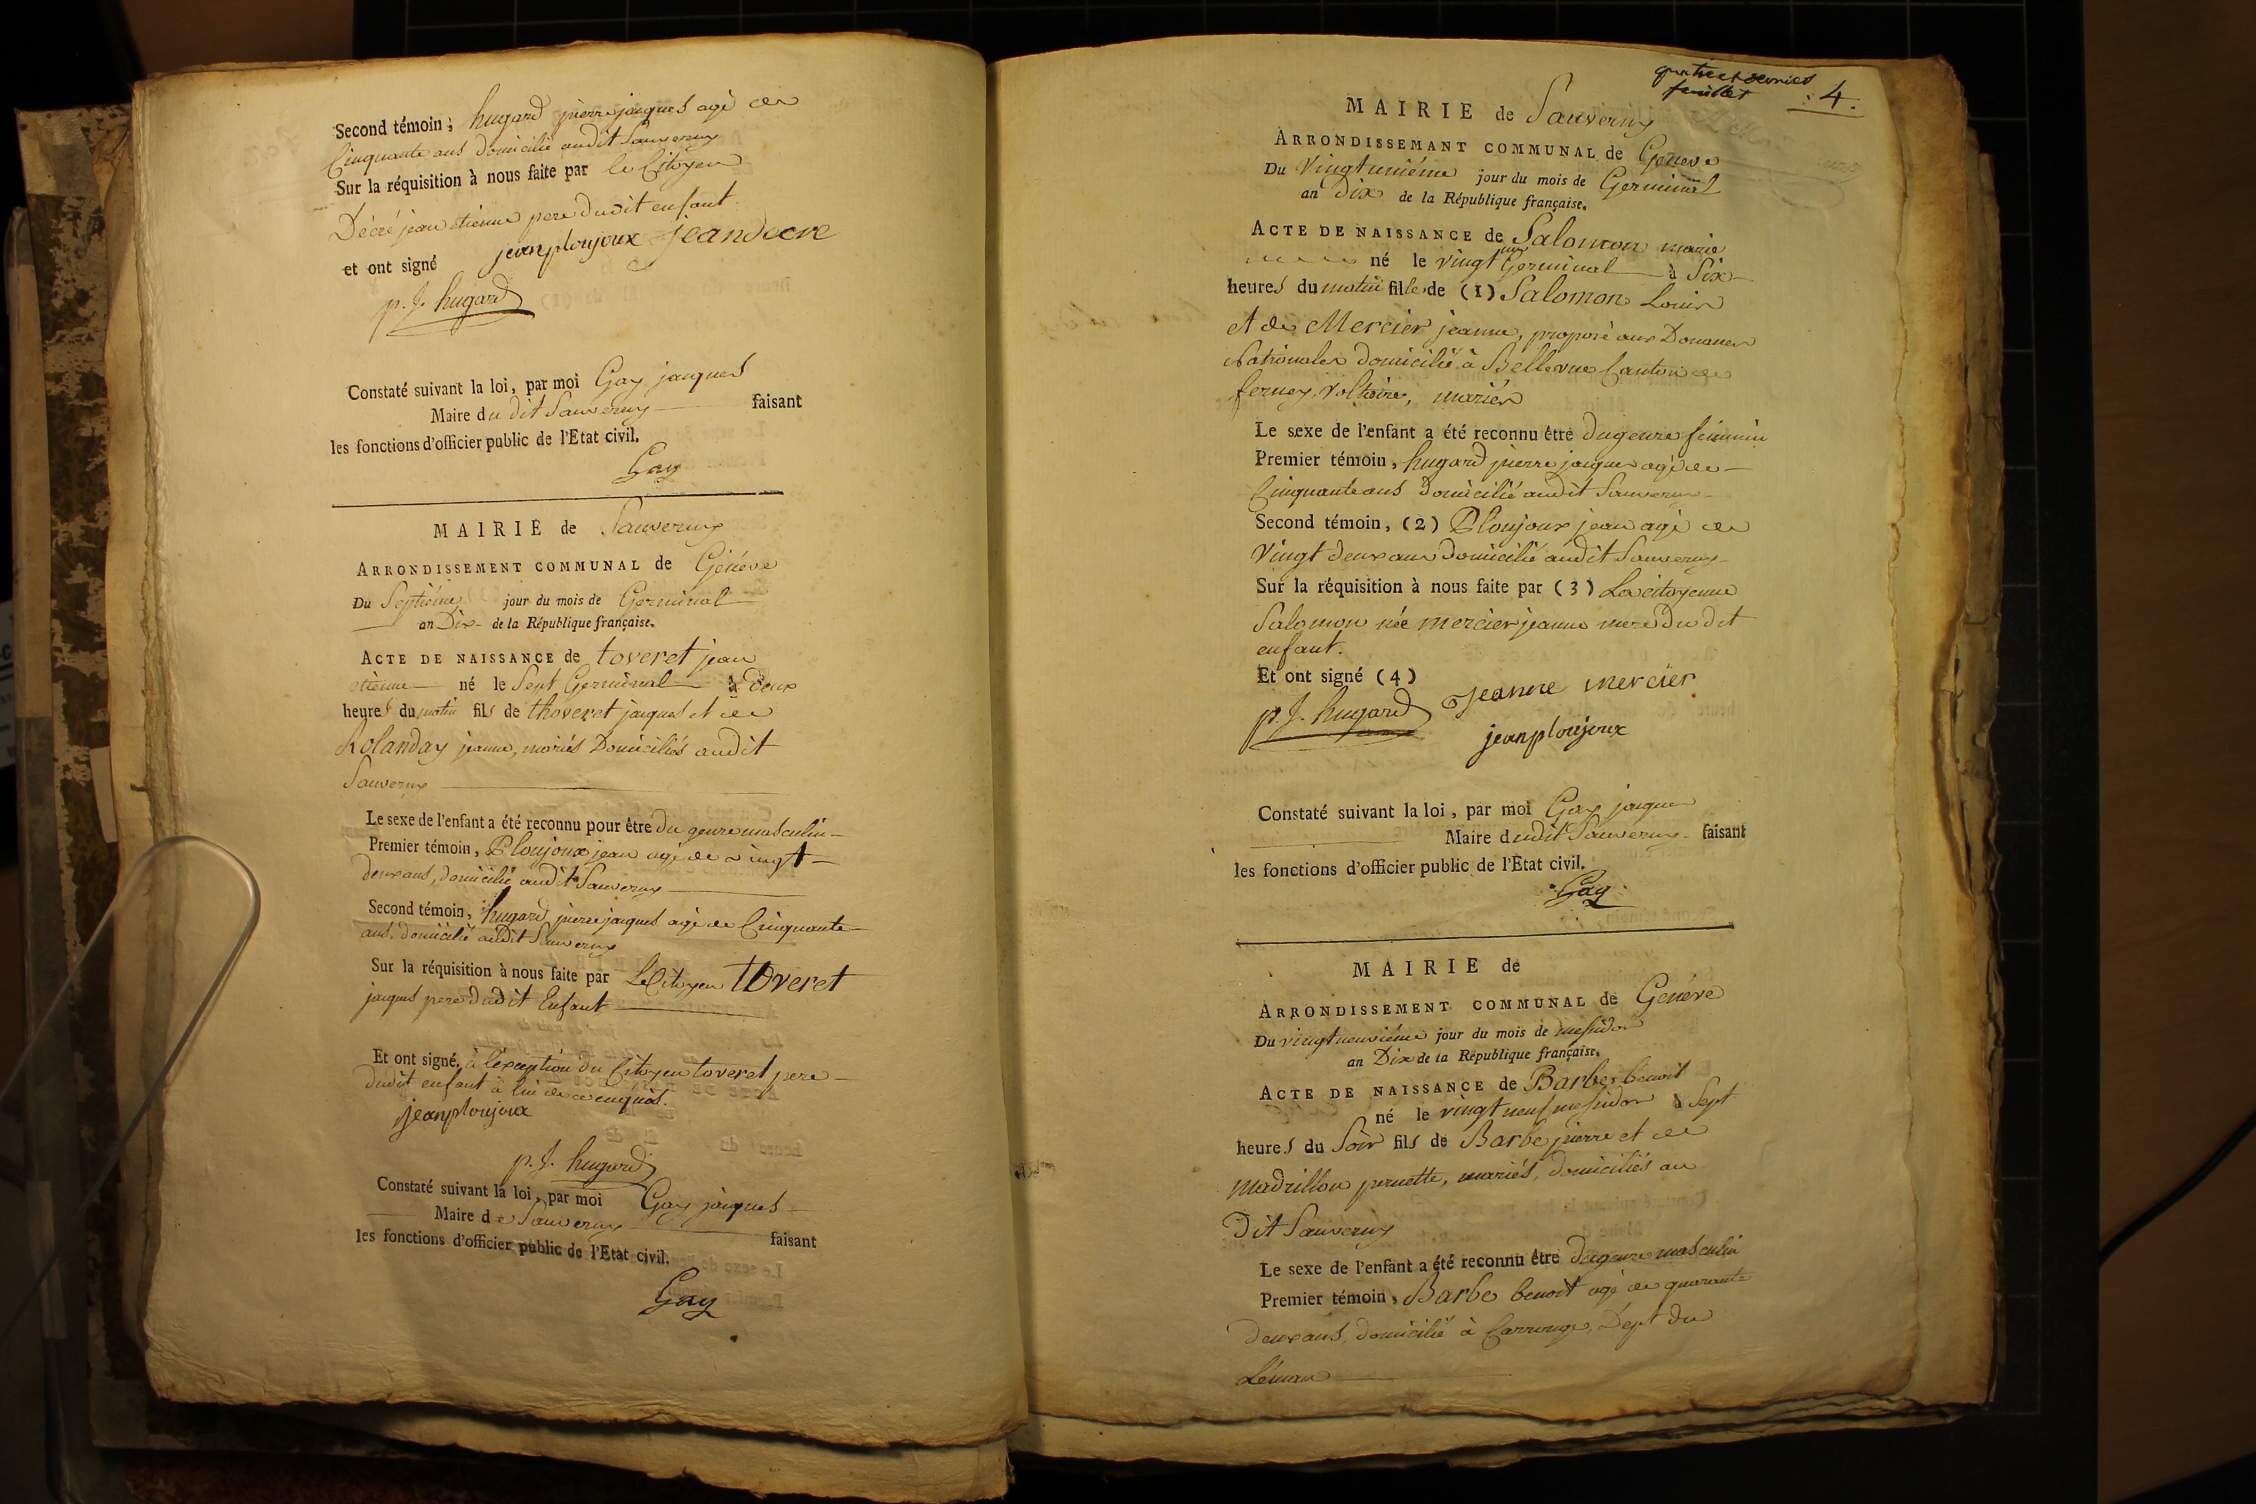 Second témoin ; hugard pierre jaques agé de
Cinquante ans domicilié audit Sauverny
Sur la réquisition à nous faite par le Citoyen
Décré jean etienne pere dudit enfant
et ont signé jeanploujoux jean decre
p. J. hugard
Constaté suivant la loi, par moi Gay jaques
Maire du dit Sauverny faisant
les fonctions d'officier public de l'Etat civil.
Gay
MAIRIE de Sauverny
ARRONDISSEMENT COMMUNAL de Généve
Du Septiéme jour du mois de Germinal
an Dix de la République française.
ACTE DE NAISSANCE de toveret jean
etienne né le Sept Germinal à deux
heures du matin fils de thoveret jaques et de
Rolanday jeanne, mariés Domiciliés audit
Sauverny
Le sexe de l'enfant a été reconnu pour être du genre masculin
Premier témoin, Ploujoux jean agé de vingt
deux ans, domicilié audit Sauverny
Second témoin, hugard pierre jaques agé de Cinquante
ans, domicilié audit Sauverny
Sur la réquisition à nous faite par Le Citoyen toveret
jaques pere dudit Enfant
Et ont signé. à l'exception du Citoyen toveret pere
dudit enfant à lui de ce enquis.
jeanploujoux
p. J. hugard
Constaté suivant la loi, par moi Gay jaques
Maire de Sauverny faisant
les fonctions d'officier public de l'Etat civil.
Gay
quatre et dernier
feuillet
4.
MAIRIE de Sauverny
ARRONDISSEMANT COMMUNAL de Géneve
Du Vingtuniéme jour du mois de Germinal
an Dix de la République française.
ACTE DE NAISSANCE de Salomon marie
né le vingt un Germinal à Six
heures du matin fille de (1) Salomon Louis
et de Mercier jeanne, proposé aux Douanes
Nationales domicilié à Bellevue Canton de
ferney Voltaire, mariés
Le sexe de l'enfant a été reconnu être du genre féminin
Premier témoin, hugard pierre jaques agé de
Cinquante ans domicilié audit Sauverny
Second témoin, (2) Ploujoux jean agé de
Vingt deux ans domicilié audit Sauverny
Sur la réquisition à nous faite par (3) La citoyenne
Salomon née mercier jeanne mere du dit
enfant.
Et ont signé (4)
p. J. hugard Jeanne mercier
jeanploujoux
Constaté suivant la loi, par moi Gay jaques
Maire dudit Sauverny faisant
les fonctions d'officier public de l'Etat civil.
Gay
MAIRIE de
ARRONDISSEMENT COMMUNAL de Genéve
Du vingtneuviéme jour du mois de messidor
an Dix de la République française.
ACTE DE NAISSANCE de Barbe benoit
né le vingt neuf messidor à Sept
heures du Soir fils de Barbe pierre et de
madrillon pernette, mariés, domiciliés au
Dit Sauverny
Le sexe de l'enfant a été reconnu être du genre masculin
Premier témoin, Barbe benoit agé de quarante
deux ans, domicilié à Carrouge, Dépt du
Léman